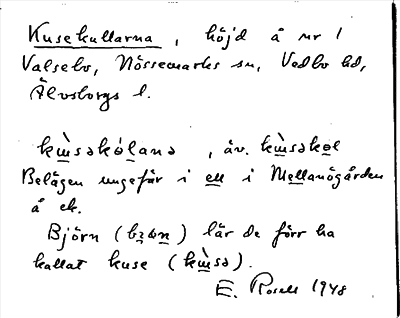 Kusekullarna, höjd å nr 1
Valsebo, Nössemarks sn, Vedbo hd,
Älvsborgs l.
kɯ̀səkólana, äv. kɯ̀səkol
Belägen ungefär i ell i Mellanögården
å ek.
Björn (bɪɷn) lär de förr ha
kallat kuse (kɯ̀sə).
E. Rosell 1948